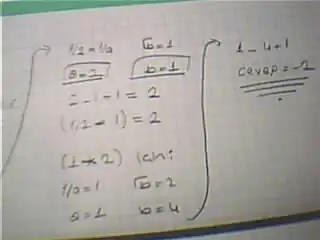 1/2 = 1/a √b = 1
a = 2 b = 1
2 - 1 - 1 = 2
(1/2 - 1) = 2
(1 * 2) Yani
1/a = 1 √b = 2
a = 1 b = 4
1 - 4 + 1
cevap = -2